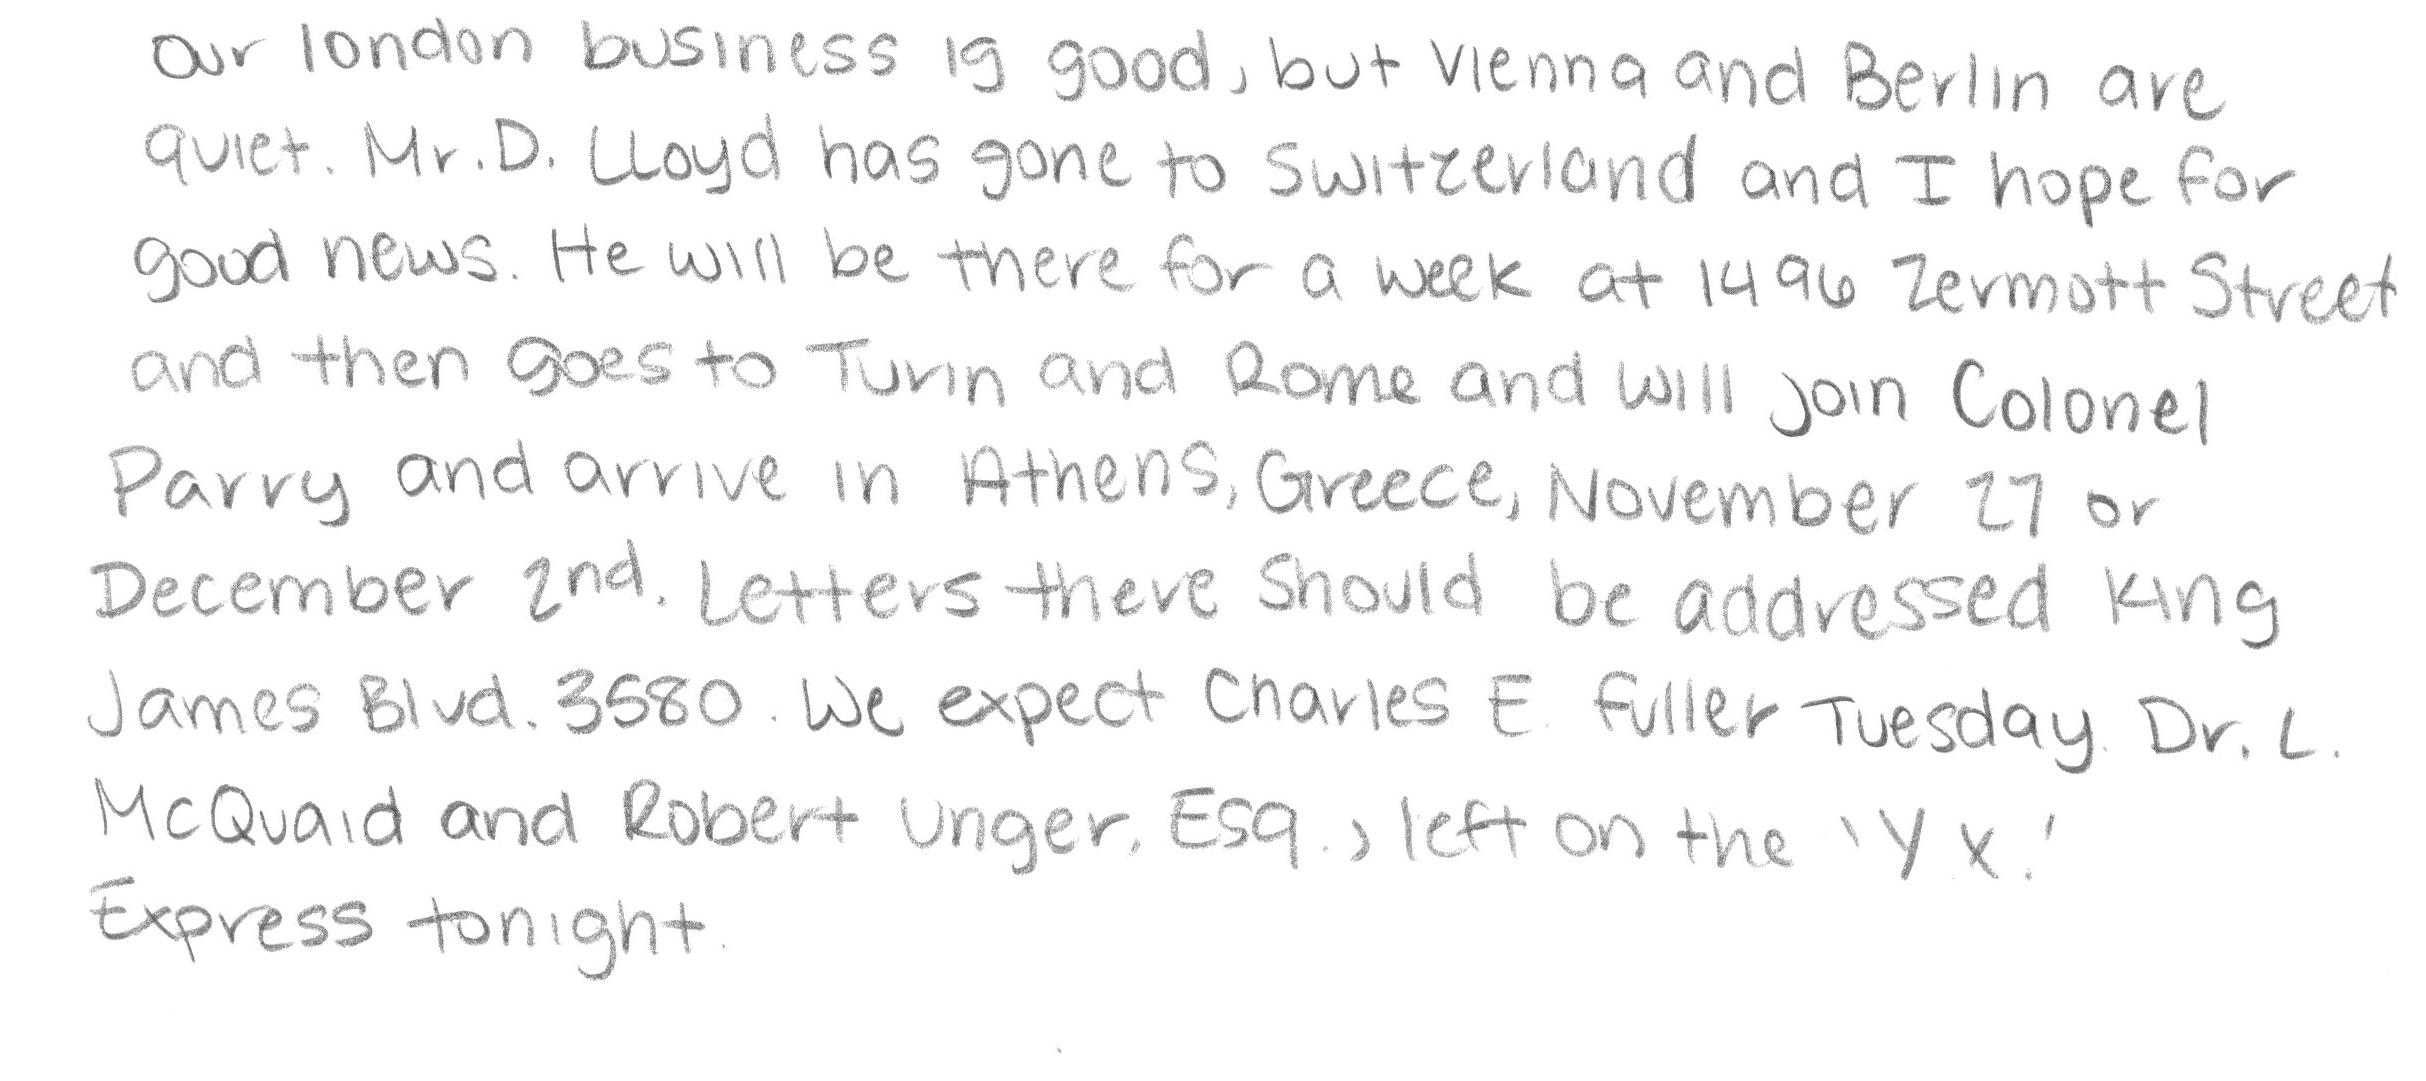 Our london business is good, but Vienna and Berlin are
quiet. Mr. D. Lloyd has gone to Switzerland and I hope for
good news. He will be there for a week at 1496 Zermott Street
and then goes to Turin and Rome and will join Colonel
Parry and arrive in Athens, Greece, November 27 or
December 2nd. Letters there Should be addressed King
James Blvd. 3580. We expect Charles E. fuller Tuesday. Dr. L.
McQuaid and Robert Unger, Esq., left on the 'Y X.'
Express tonight.